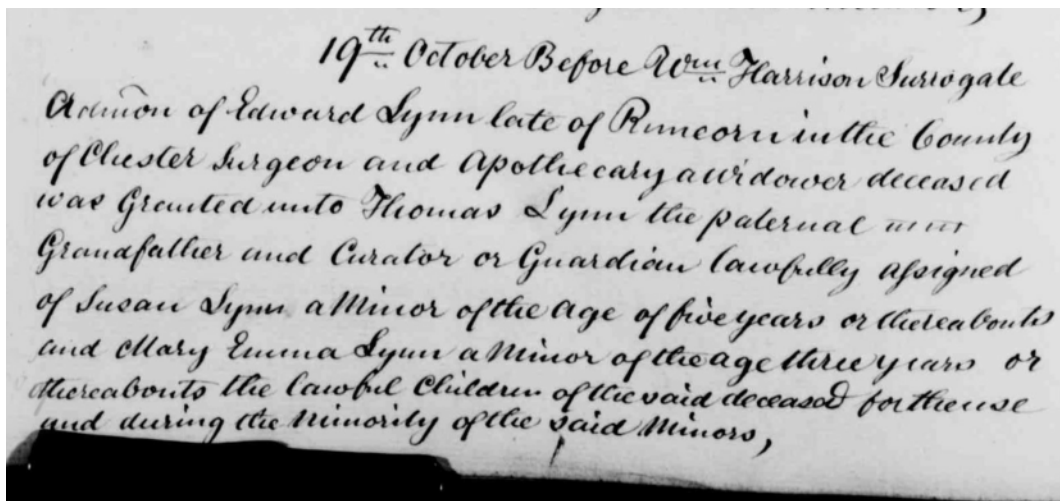 19th October Before Wm Harrison Surrogate
Admon of Edward Lynn late of Runcorn in the County
of Chester Surgeon and Apothecary a widower deceased
was Granted unto Thomas Lynn the paternal
Grandfather and Curator or Guardian lawfully assigned
of Susan Lynn a Minor of the Age of five years or thereabouts
and Mary Emma Lynn a Minor of the age three years or
thereabouts the lawful Children of the said deceased for the use
and during the Minority of the said Minors,